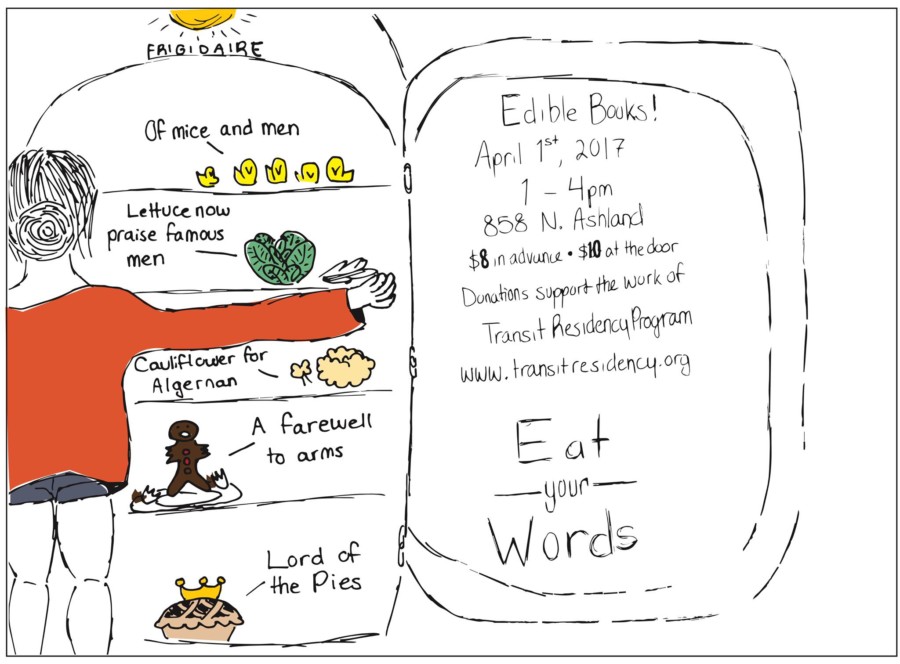 FRIGIDAIRE
Of mice and men
Lettuce now
praise famous
men
Cauliflower for
Algernan
A farewell
to arms
Lord of
the Pies
Edible Books!
April 1st, 2017
1 - 4pm
858 N. Ashland
$8 in advance • $10 at the door
Donations support the work of
Transit Residency Program
www.transitresidency.org
Eat
your
Words